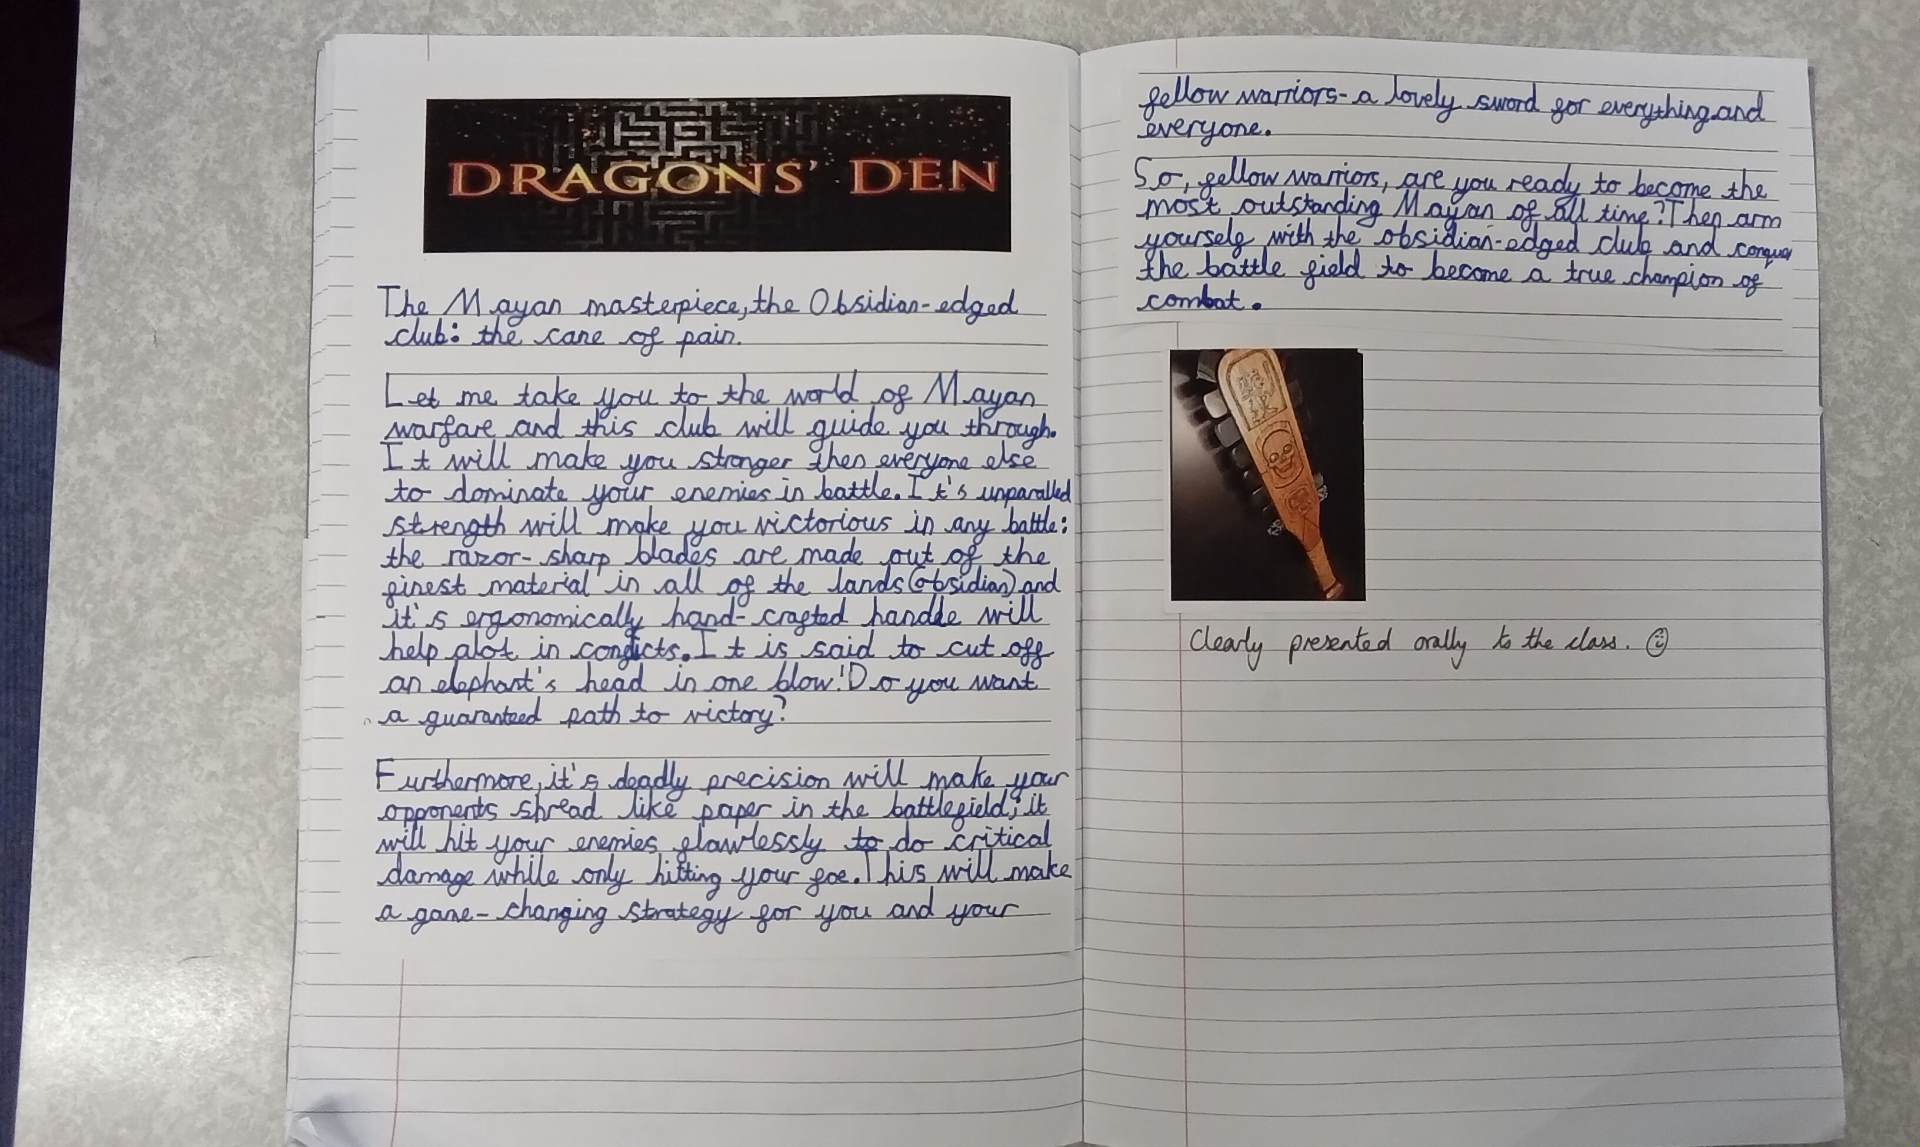 DRAGONS' DEN
The Mayan masterpiece, the Obsidian-edged
club: the cane of pain.
Let me take you to the world of Mayan
warfare and this club will guide you through.
It will make you stronger then everyone else
to dominate your enemies in battle. It's unparalled
strength will make you victorious in any battle:
the razor-sharp blades are made out of the
finest material in all of the lands (obsidian) and
it's ergonomically hand-crafted handle will
help alot in conflicts. It is said to cut off
an elephant's head in one blow! Do you want
a guaranteed path to victory?
Furthermore, it's deadly precision will make your
opponents shread like paper in the battlefield; it
will hit your enemies flawlessly to do critical
damage while only hitting your foe. This will make
a game-changing strategy for you and your
fellow warriors- a lovely sword for everything and
everyone.
So, fellow warriors, are you ready to become the
most outstanding Mayan of all time? Then arm
yourself with the obsidian-edged club and conquer
the battle field to become a true champion of
combat.
Clearly presented orally to the class. ☺